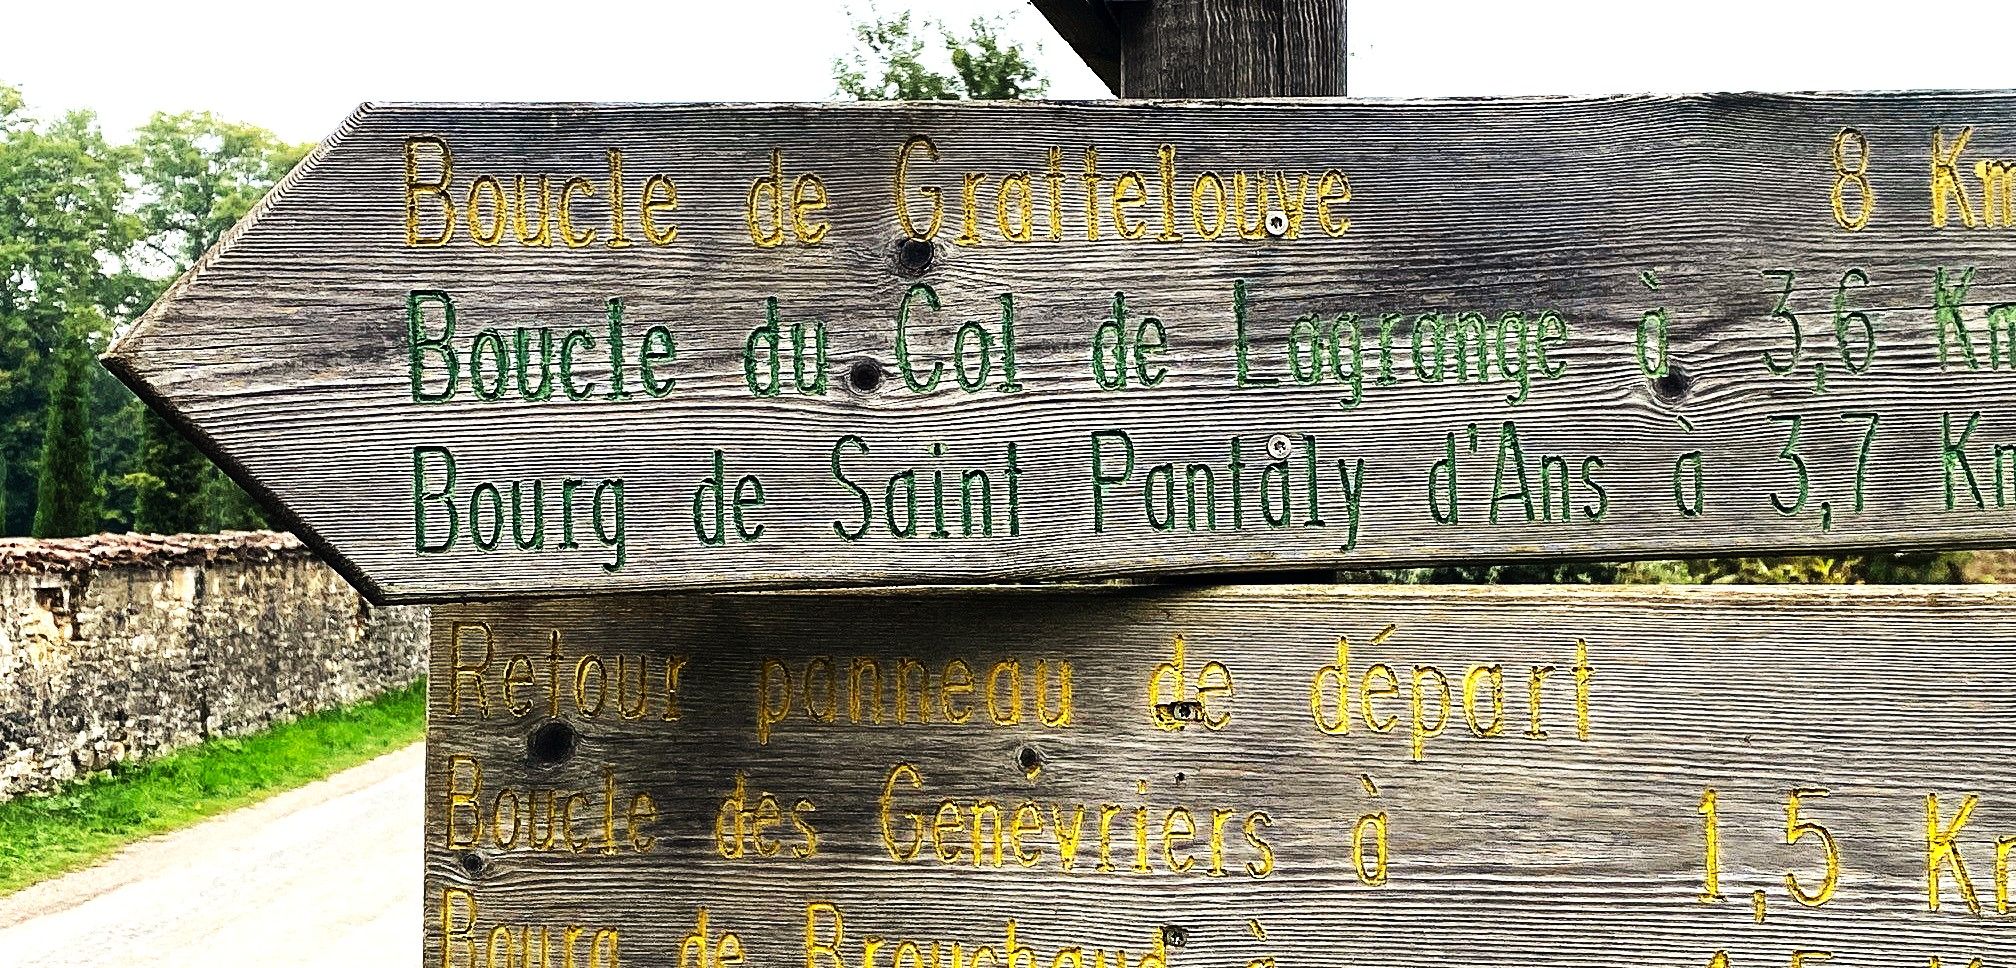 Boucle de Grattelouve 8 Km
Boucle du Col de Lagrange à 3,6 Km
Bourg de Saint Pantaly d'Ans à 3,7 Km
Retour panneau de départ
Boucle des Genévriers à 1,5 Km
Bourg de Brouchaud à